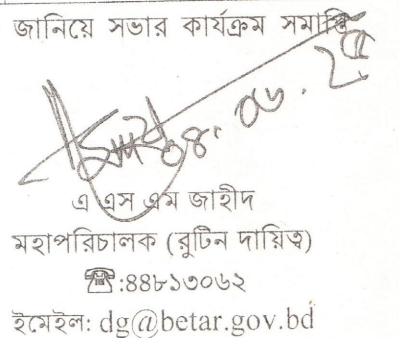 জানিয়ে সভার কার্যক্রম সমাপ্তি
এ এস এম জাহীদ
মহাপরিচালক (রুটিন দায়িত্ব)
☎:৪৪৮১৩০৬২
ইমেইল: dg@betar.gov.bd